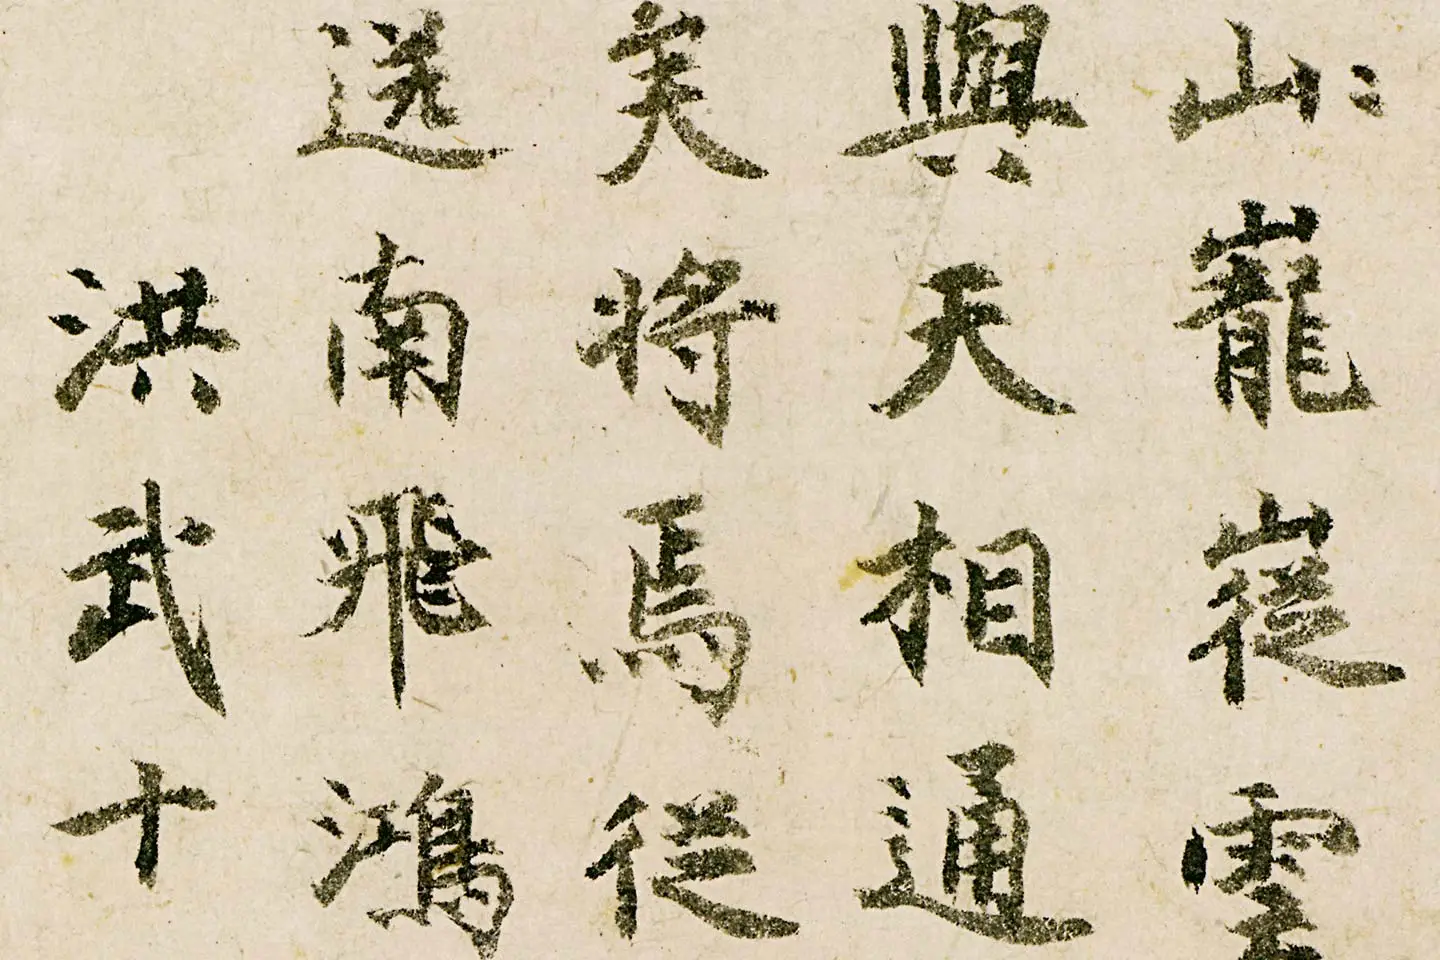 山巃嵸雲
與天相通
矣將焉從
送南飛鴻
洪武十